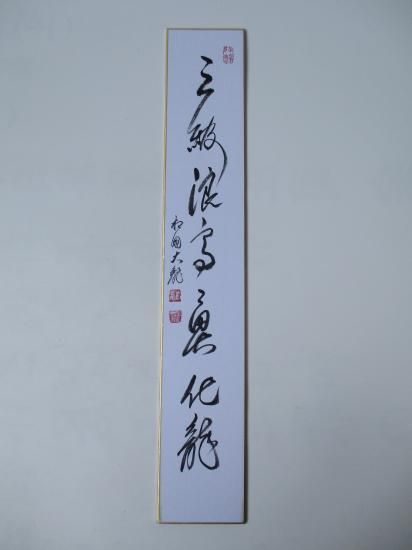 三級浪高魚化龍
相國大龍